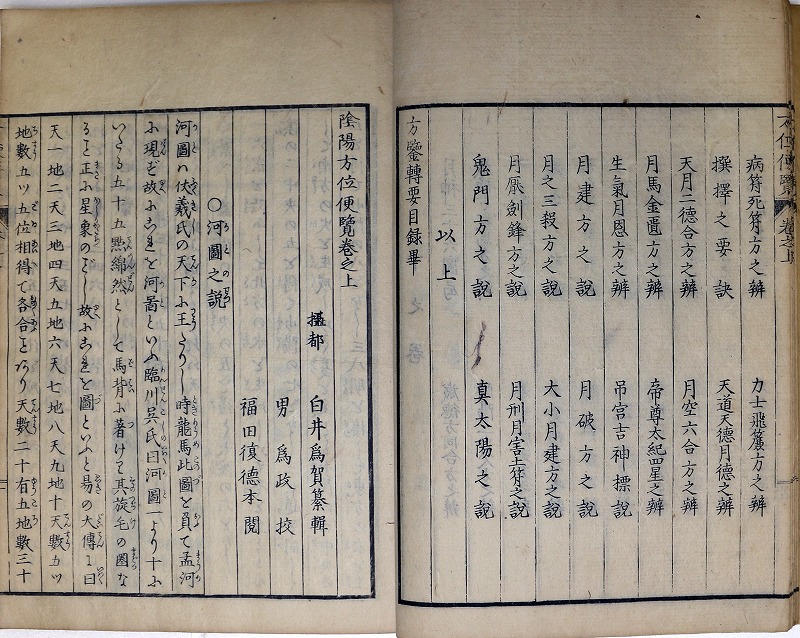 病符死符方之辨　力士飛簾方之辨
撰擇之要訣　天道天德月德之辨
天月二德合方之辨　月空六合方之辨
月馬金匱方之辨　帝尊太紀四星之辨
生氣月恩方之辨　吊宮吉神標說
月建方之說　月破方之說
月之三殺方之說　大小月建方之說
月厭劍鋒方之說　月刑月害土符之說
鬼門方之說　真太陽之說
以上
方鑒轉要目録畢
陰陽方位便覽卷之上
白井爲賀纂輯
男　爲政挍
福田復德本閲
〇河圖之説
河圖ハ伏羲氏の天下に王たりし時龍馬此圖を負て孟河
に現ず故にこれを河圖といふ臨川呉氏曰河圖一より十に
いたる五十五㸃綿然として馬背に著けて其旋毛の圏な
る𪜈正に星象のごし故にこれを圖といふと易の大傳に曰
天一地二天三地四天五地六天七地八天九地十天數五ツ
地數五ツ五位相得て各合ことあり天數二十有五地數三十